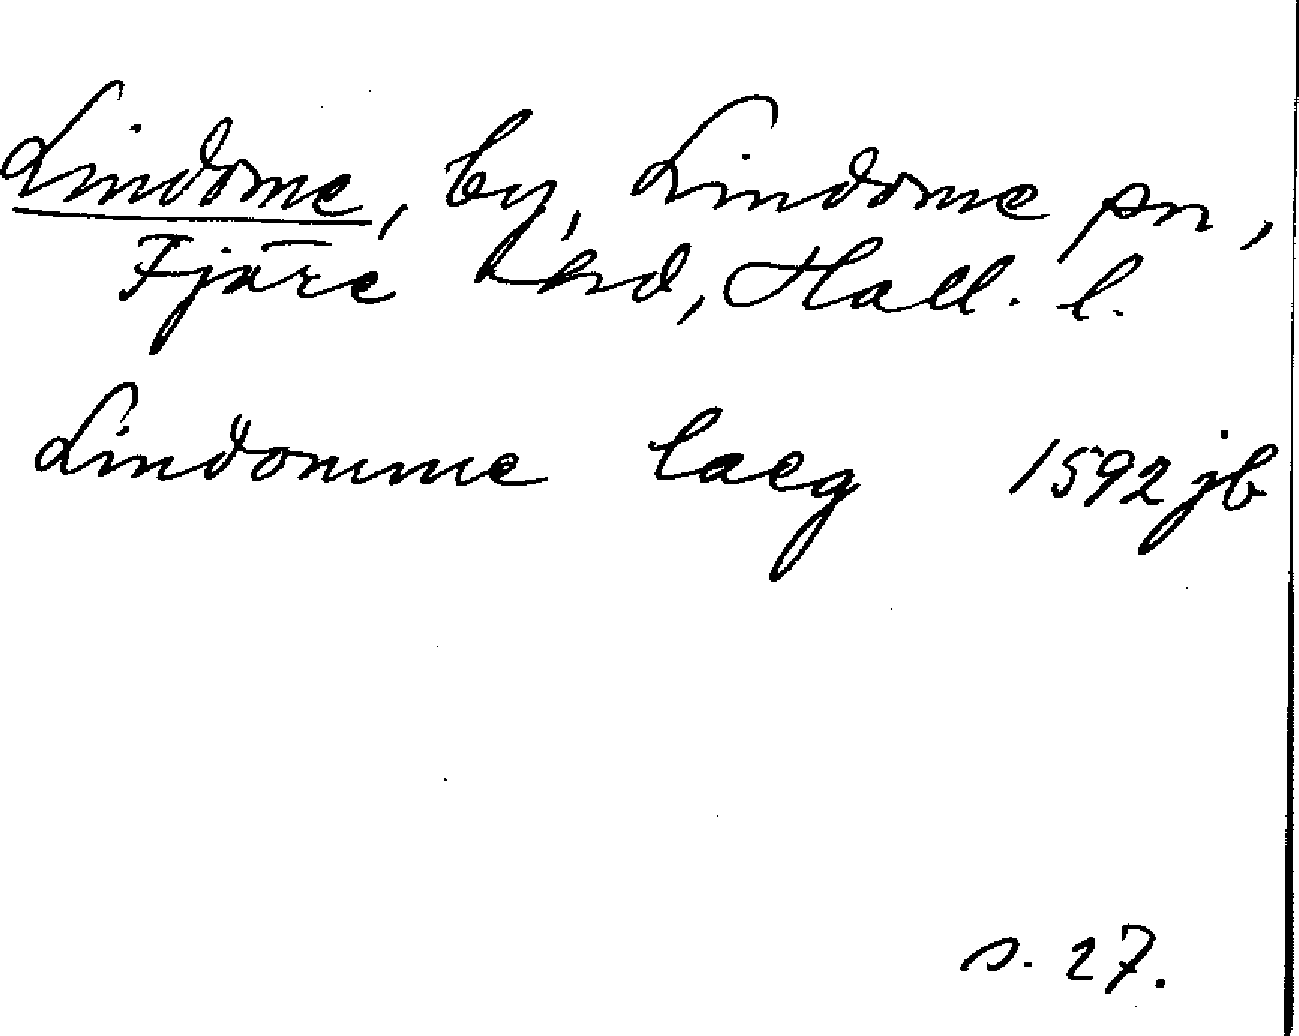 Lindome, by, Lindome sn,
Fjäre hrd, Hall. l.
Lindomme laeg 1592 jb
s. 27.